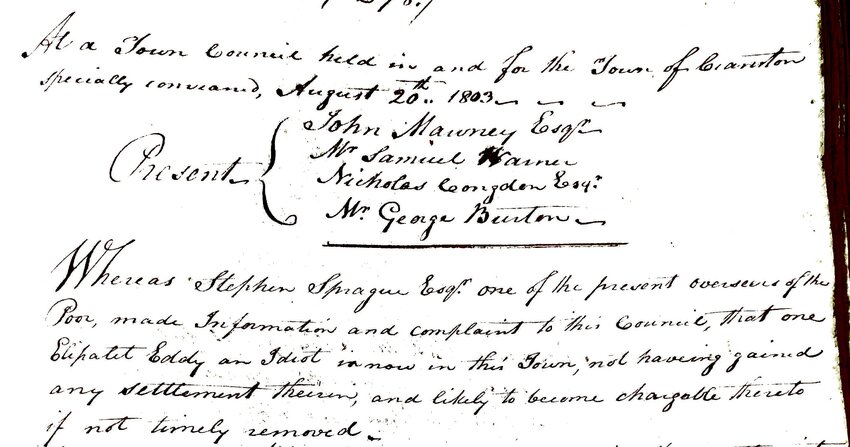 At a Town Council held in and for the Town of Cranston
specially conveaned, August 20th. 1803
John Mawney Esqr
Mr Samuel Warner
Present
Nicholas Congdon Esqr.
Mr. George Burton
Whereas Stephen Sprague Esqr. one of the present overseers of the
Poor, made Information and complaint to this Council, that one
Elipalet Eddy an Idiot is now in this Town, not haveing gained
any settlement therein, and likely to become chargable thereto
if not timely removed